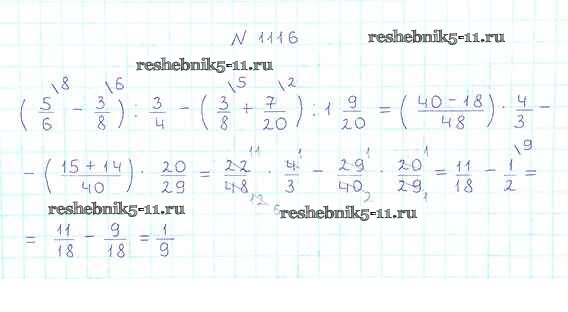 N 1116
reshebnik5-11.ru
reshebnik5-11.ru
(5/6 \8 − 3/8 \6) : 3/4 − (3/8 \5 + 7/20 \2) : 1 9/20 = ((40 − 18)/48) · 4/3 −
− ((15 + 14)/40) · 20/29 = 22/48 · 4/3 − 29/40 · 20/29 = 11/18 − 1/2 \9 =
reshebnik5-11.ru
reshebnik5-11.ru
= 11/18 − 9/18 = 1/9